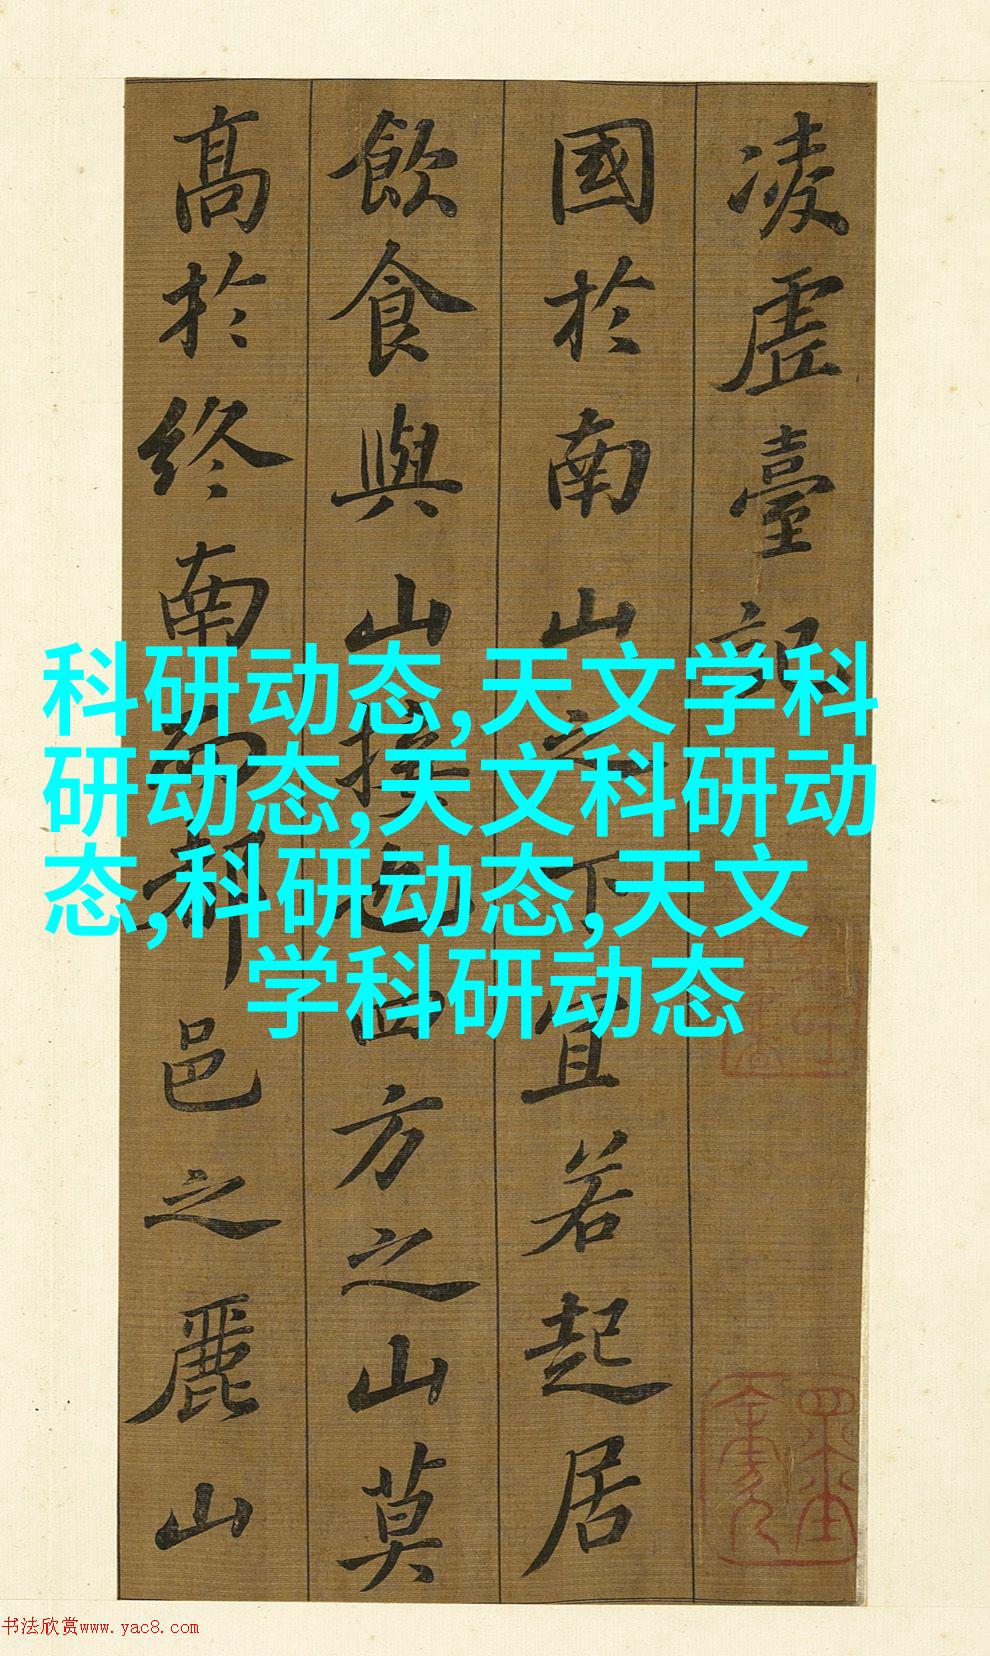 凌虛臺記
國於南山之下宜若起居
飲食與山接也四方之山莫
高於終南而都邑之麗山
科研动态,天文学科
研动态,天文科研动
态,科研动态,天文
学科研动态
书法欣赏www.yac8.com